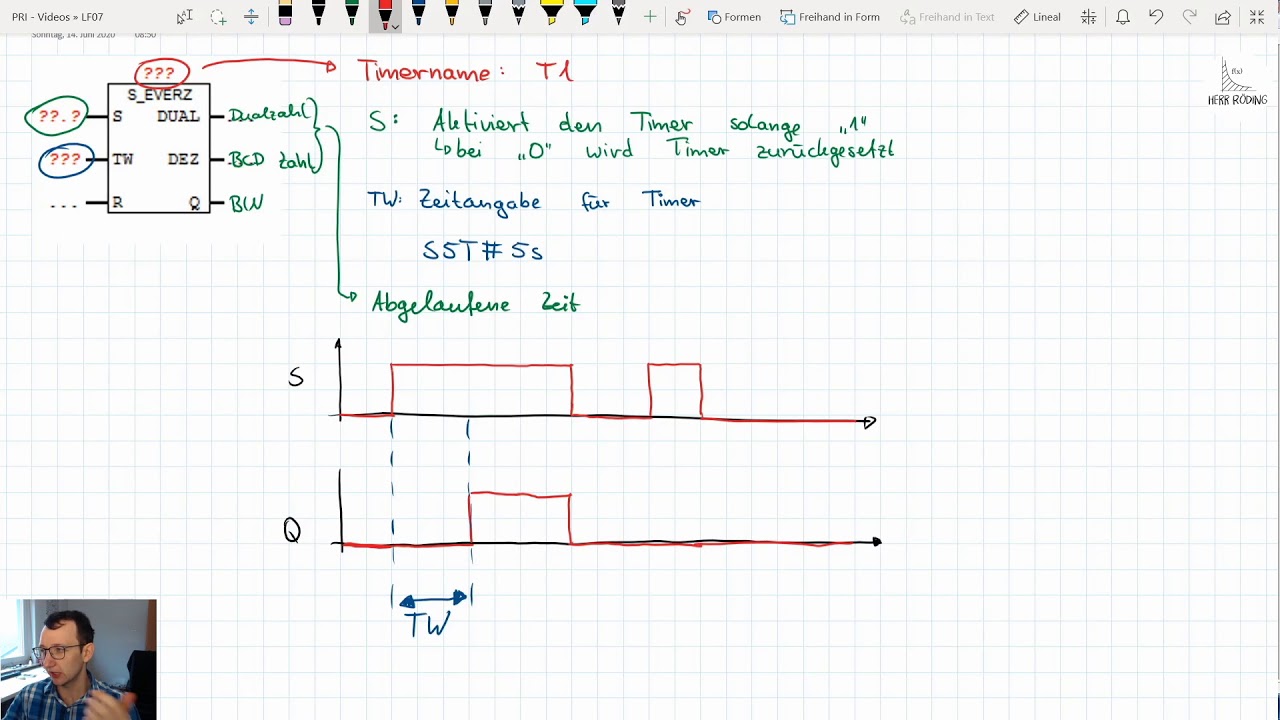 PRI - Videos » LF07
Formen
Freihand in Form
Freihand in Text
Lineal
Sonntag, 14. Juni 2020 08:50
f(x)
HERR RÖDING
???
Timername: T1
S_EVERZ
??.? S DUAL Dualzahl
S: Aktiviert den Timer solange „1"
↳ bei „0" wird Timer zurückgesetzt
??? TW DEZ BCD Zahl
TW: Zeitangabe für Timer
... R Q BW
S5T#5s
Abgelaufene Zeit
S
Q
TW